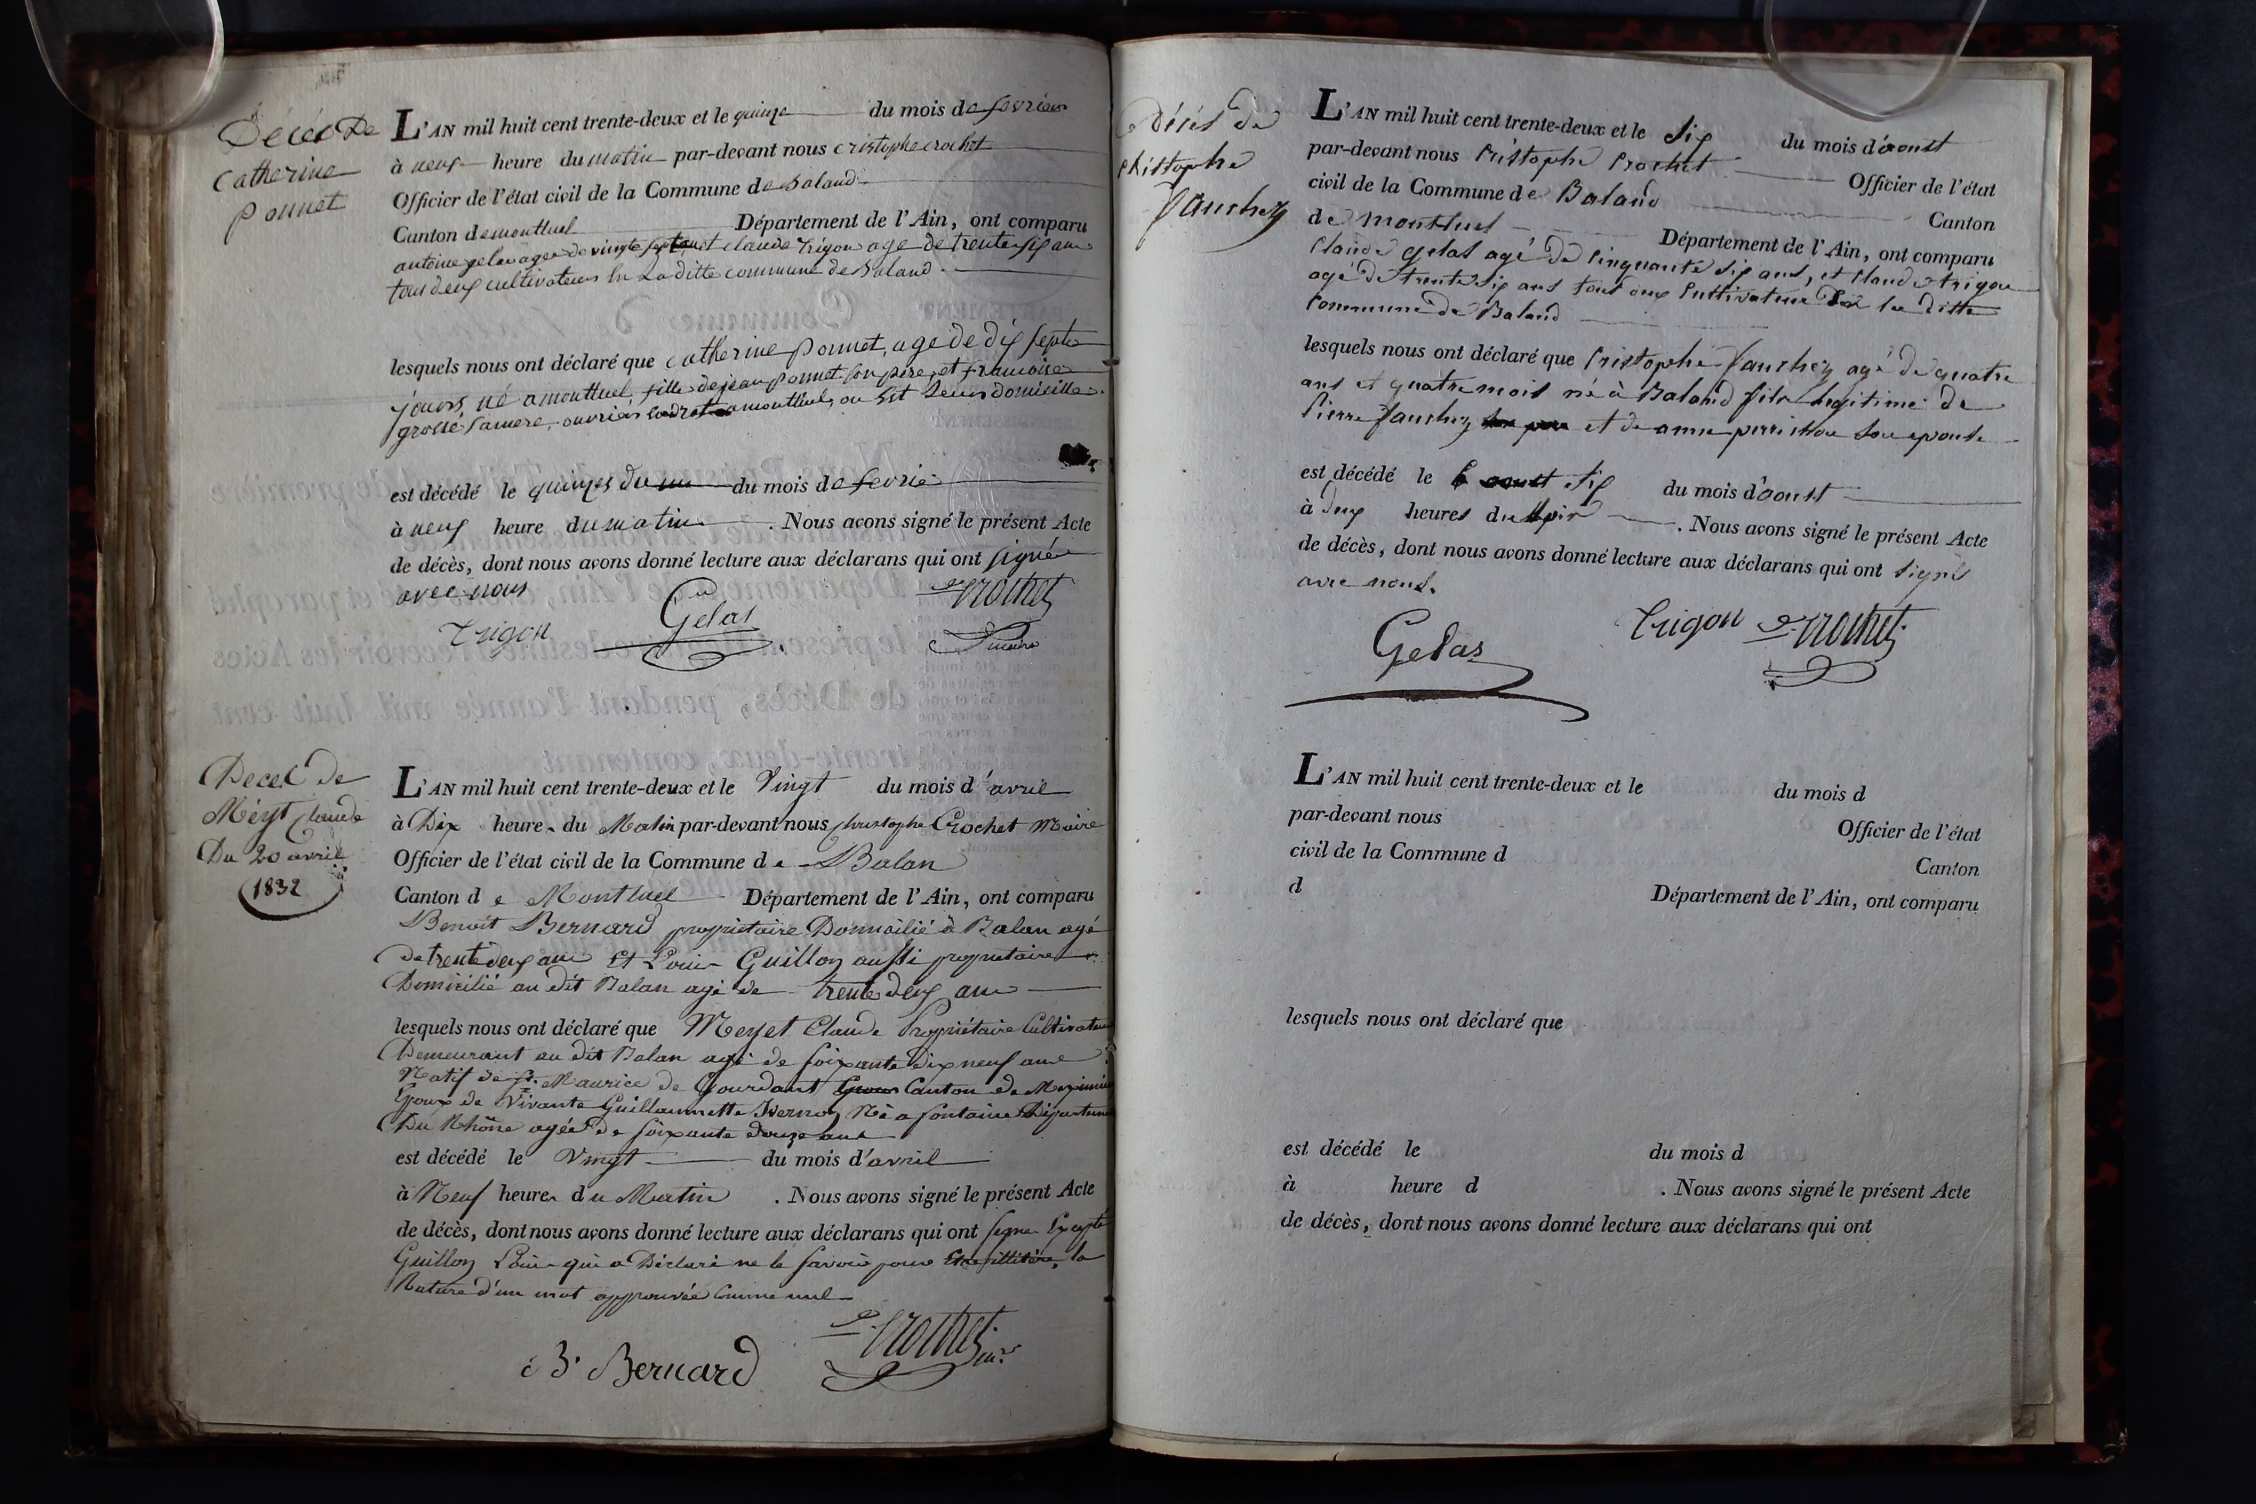 Décès De
Catherine
ponnet
L'AN mil huit cent trente-deux et le quinze du mois de fevrier
à neuf heure du matin par-devant nous cristophe crochet
Officier de l'état civil de la Commune de Baland
Canton de montluel Département de l'Ain, ont comparu
antoine gelas agee de vingt et claude trigon age de trente six ans
tous deux cultivateurs en La ditte commune de Baland
lesquels nous ont déclaré que catherine ponnet, age de dix septe
jours, né a montluel, fille de jean ponnet son père, et francoise
grosse sa mere, ouvriers a montluel, ou est leurs domicille
est décédé le quinze du du mois de fevrie
à neuf heure du matin . Nous avons signé le présent Acte
de décès, dont nous avons donné lecture aux déclarans qui ont signé
avec nous
trigon Gelas Crochet
maire
Decès de
Méyt Claude
Du 20 avril
1832
L'AN mil huit cent trente-deux et le Vingt du mois d'avril
à Dix heure du Matin par-devant nous Christophe Crochet Maire
Officier de l'état civil de la Commune de Balan
Canton de Montluel Département de l'Ain, ont comparu
Benoit Bernard propriétaire Domicilié à Balan agé
de trente deux ans Et Louis Guillon aussi propriétaire
Domicilié au dit Balan agé de trente deux ans
lesquels nous ont déclaré que Meyet Claude Propriétaire Cultivateur
Demeurant au dit Balan agé de soixante dix neuf ans
Natif de St. Maurice de Gourdant Canton de Meximieu
Epoux de Vivante Guillaumette Ivernoy Né a fontaine Département
Du Rhône agée de soixante douze ans
est décédé le Vingt du mois d'avril
à Neuf heures du Matin . Nous avons signé le présent Acte
de décès, dont nous avons donné lecture aux déclarans qui ont signe Excepté
Guillon Louis qui a Déclaré ne le savoir pour Etre illitéré, la
Rature d'un mot approuvée Comme nul
B. Bernard Crochet
mre
Décès de
Christophe
fauchez
L'AN mil huit cent trente-deux et le Six du mois d'aoust
par-devant nous Cristophe Crochet Officier de l'état
civil de la Commune de Baland Canton
de montluel Département de l'Ain, ont comparu
Claude gelas agé de Cinquante six ans, et Claude trigon
agé de trente six ans tous deux Cultivateur la ditte
Commune de Baland
lesquels nous ont déclaré que Cristophe fauchez agé de quatre
ans et quatre mois né à Baland fils legitime de
Pierre fauchez son pere et de anne perrichon son epouse
est décédé le 6 aoust Six du mois d'aoust
à deux heures du soir . Nous avons signé le présent Acte
de décès, dont nous avons donné lecture aux déclarans qui ont signés
avec nous.
Gelas Trigon Crochet
L'AN mil huit cent trente-deux et le du mois d
par-devant nous Officier de l'état
civil de la Commune d Canton
d Département de l'Ain, ont comparu
lesquels nous ont déclaré que
est décédé le du mois d
à heure d . Nous avons signé le présent Acte
de décès, dont nous avons donné lecture aux déclarans qui ont